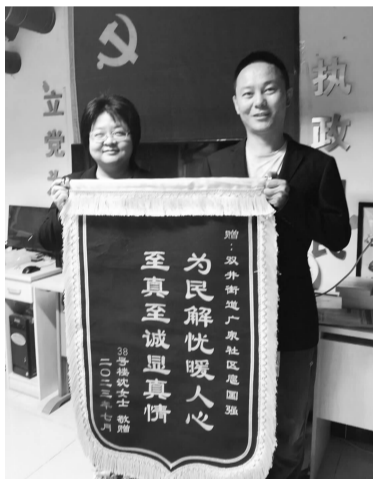 立党
执政
赠：双井街道广泉社区扈国强
为民解忧暖人心
至真至诚显真情
38号楼沈女士 敬赠
二〇二三年七月